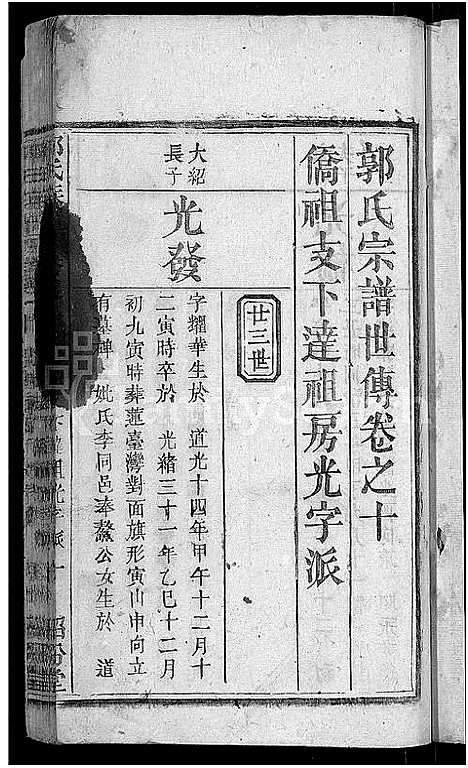 郭氏宗譜世傳卷之十
僑祖支下達祖房光字派
廿三世
大紹
長子
光發
字耀華生於 道光十四年甲午十二月十
二寅時卒於 光緒三十一年乙巳十二月
初九寅時葬蓮臺灣對面旗形寅山申向立
有墓碑 妣氏李同邑奉鰲公女生於 道